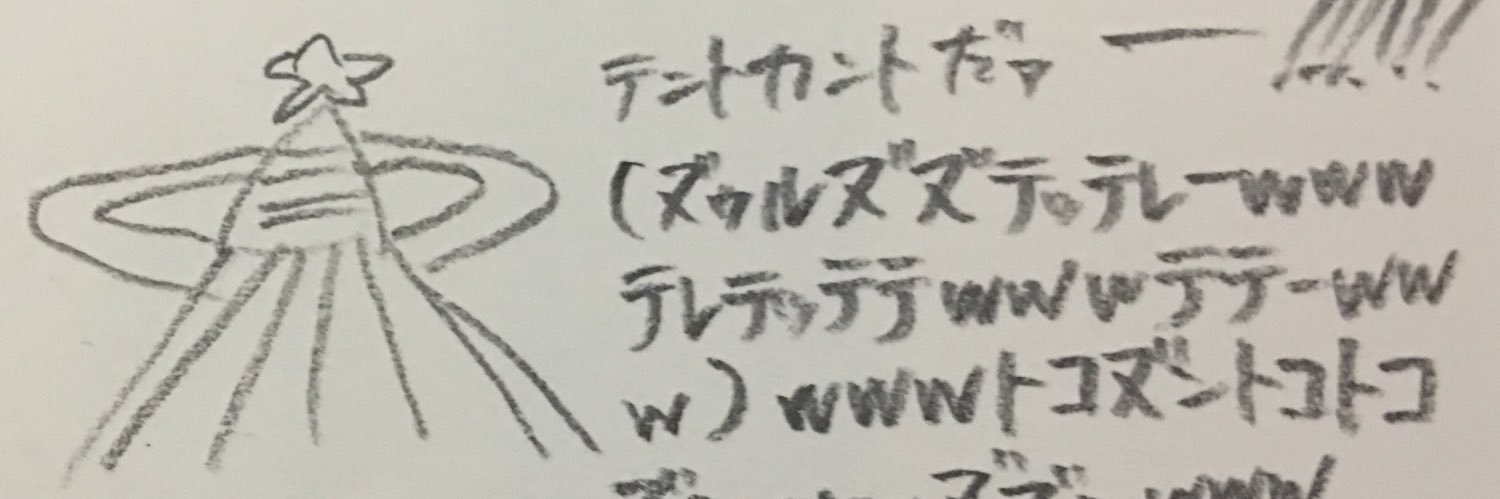 テントカントだァー!!!!!!
(ズゥルズズテッテレーwww
テレテッテテwwwテテーww
w)wwwトコズントコトコ